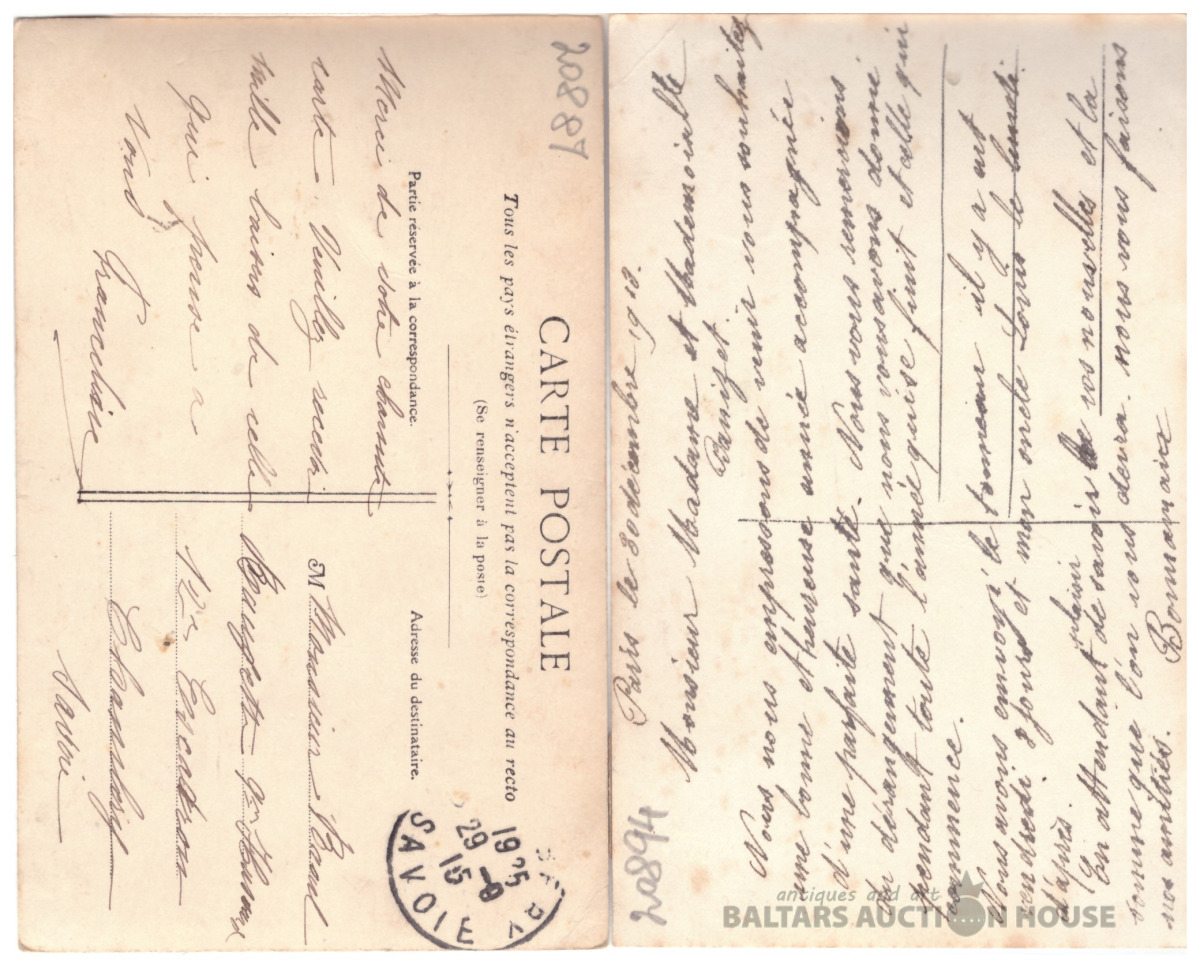 20887
CARTE POSTALE
Tous les pays étrangers n'acceptent pas la correspondance au recto
(Se renseigner à la poste)
Partie réservée à la correspondance.
Adresse du destinataire.
Merci de votre charmante
carte. Veuillez recevoir
mille baisers de celle
qui pense à
Vous
Francheline
M Monsieur Paul
Chambéry
Savoie
SAVOIE
1925
29-9
15
20894
Paris le 30 décembre 1912.
Monsieur Madame et Mademoiselle
Panizet
Nous nous empressons de venir vous souhaitez
une bonne et heureuse année accompagnée
d'une parfaite santé. Nous vous remercions
du dérangement que nous vous avons donné
pendant toute l'année qui se finit et celle qui
commence.
Nous avons envoyé le tonneau il y a eut
vendredi 3 jours et mon oncle Louis le lundi
d'après.
En attendant plaisir de savoir de vos nouvelles et la
somme que l'on vous devra. nous vous faisons
nos amitiés.
Bonnaire
antiques and art
BALTARS AUCTION HOUSE